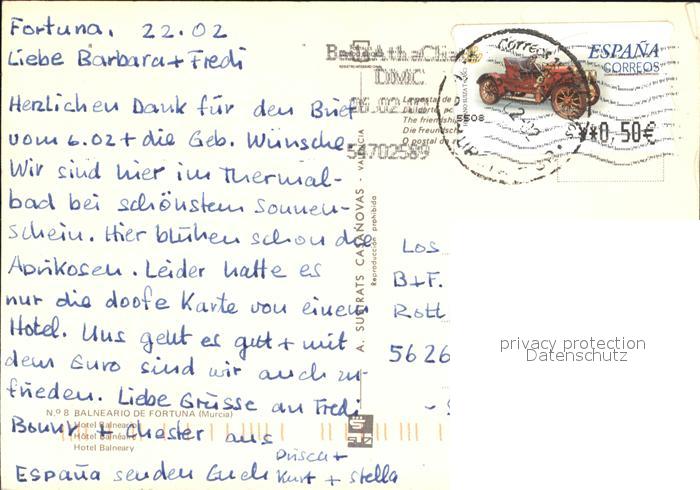 Fortuna, 22.02
Liebe Barbara + Fredi
Herzlichen Dank für den Brief
vom 6.02 + die Geb. Wünsche.
Wir sind hier im Thermal-
bad bei schönstem Sonnen-
schein. Hier blühen schon die
Aprikosen. Leider hatte es
nur die doofe Karte von einem
Hotel. Uns geht es gut + mit
dem Euro sind wir auch zu-
frieden. Liebe Grüsse an Fredi
+ Chester aus
España senden Euch Kurt + Stella
N.º 8 BALNEARIO DE FORTUNA (Murcia)
Hotel Balneario
Hotel Balneary
A. SUBIRATS CASANOVAS - VALENCIA
Reproducción prohibida
ESPAÑA
CORREOS
Correos
**0,50€
5508
The friendship
Die Freundsch
O postal da
56702589
Los
B+F.
Rott
5626
privacy protection
Datenschutz